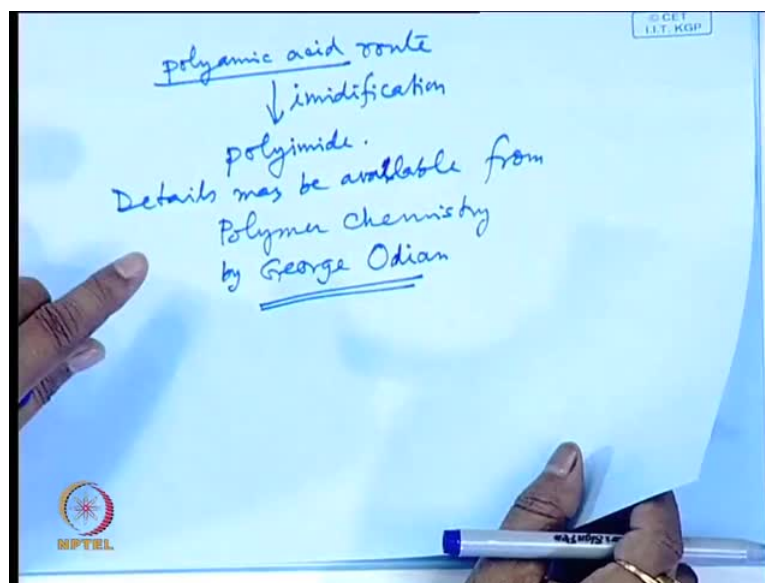 © CET
I.I.T. KGP
polyamic acid route
imidification
polyimide.
Details may be available from
Polymer Chemistry
by George Odian
NPTEL